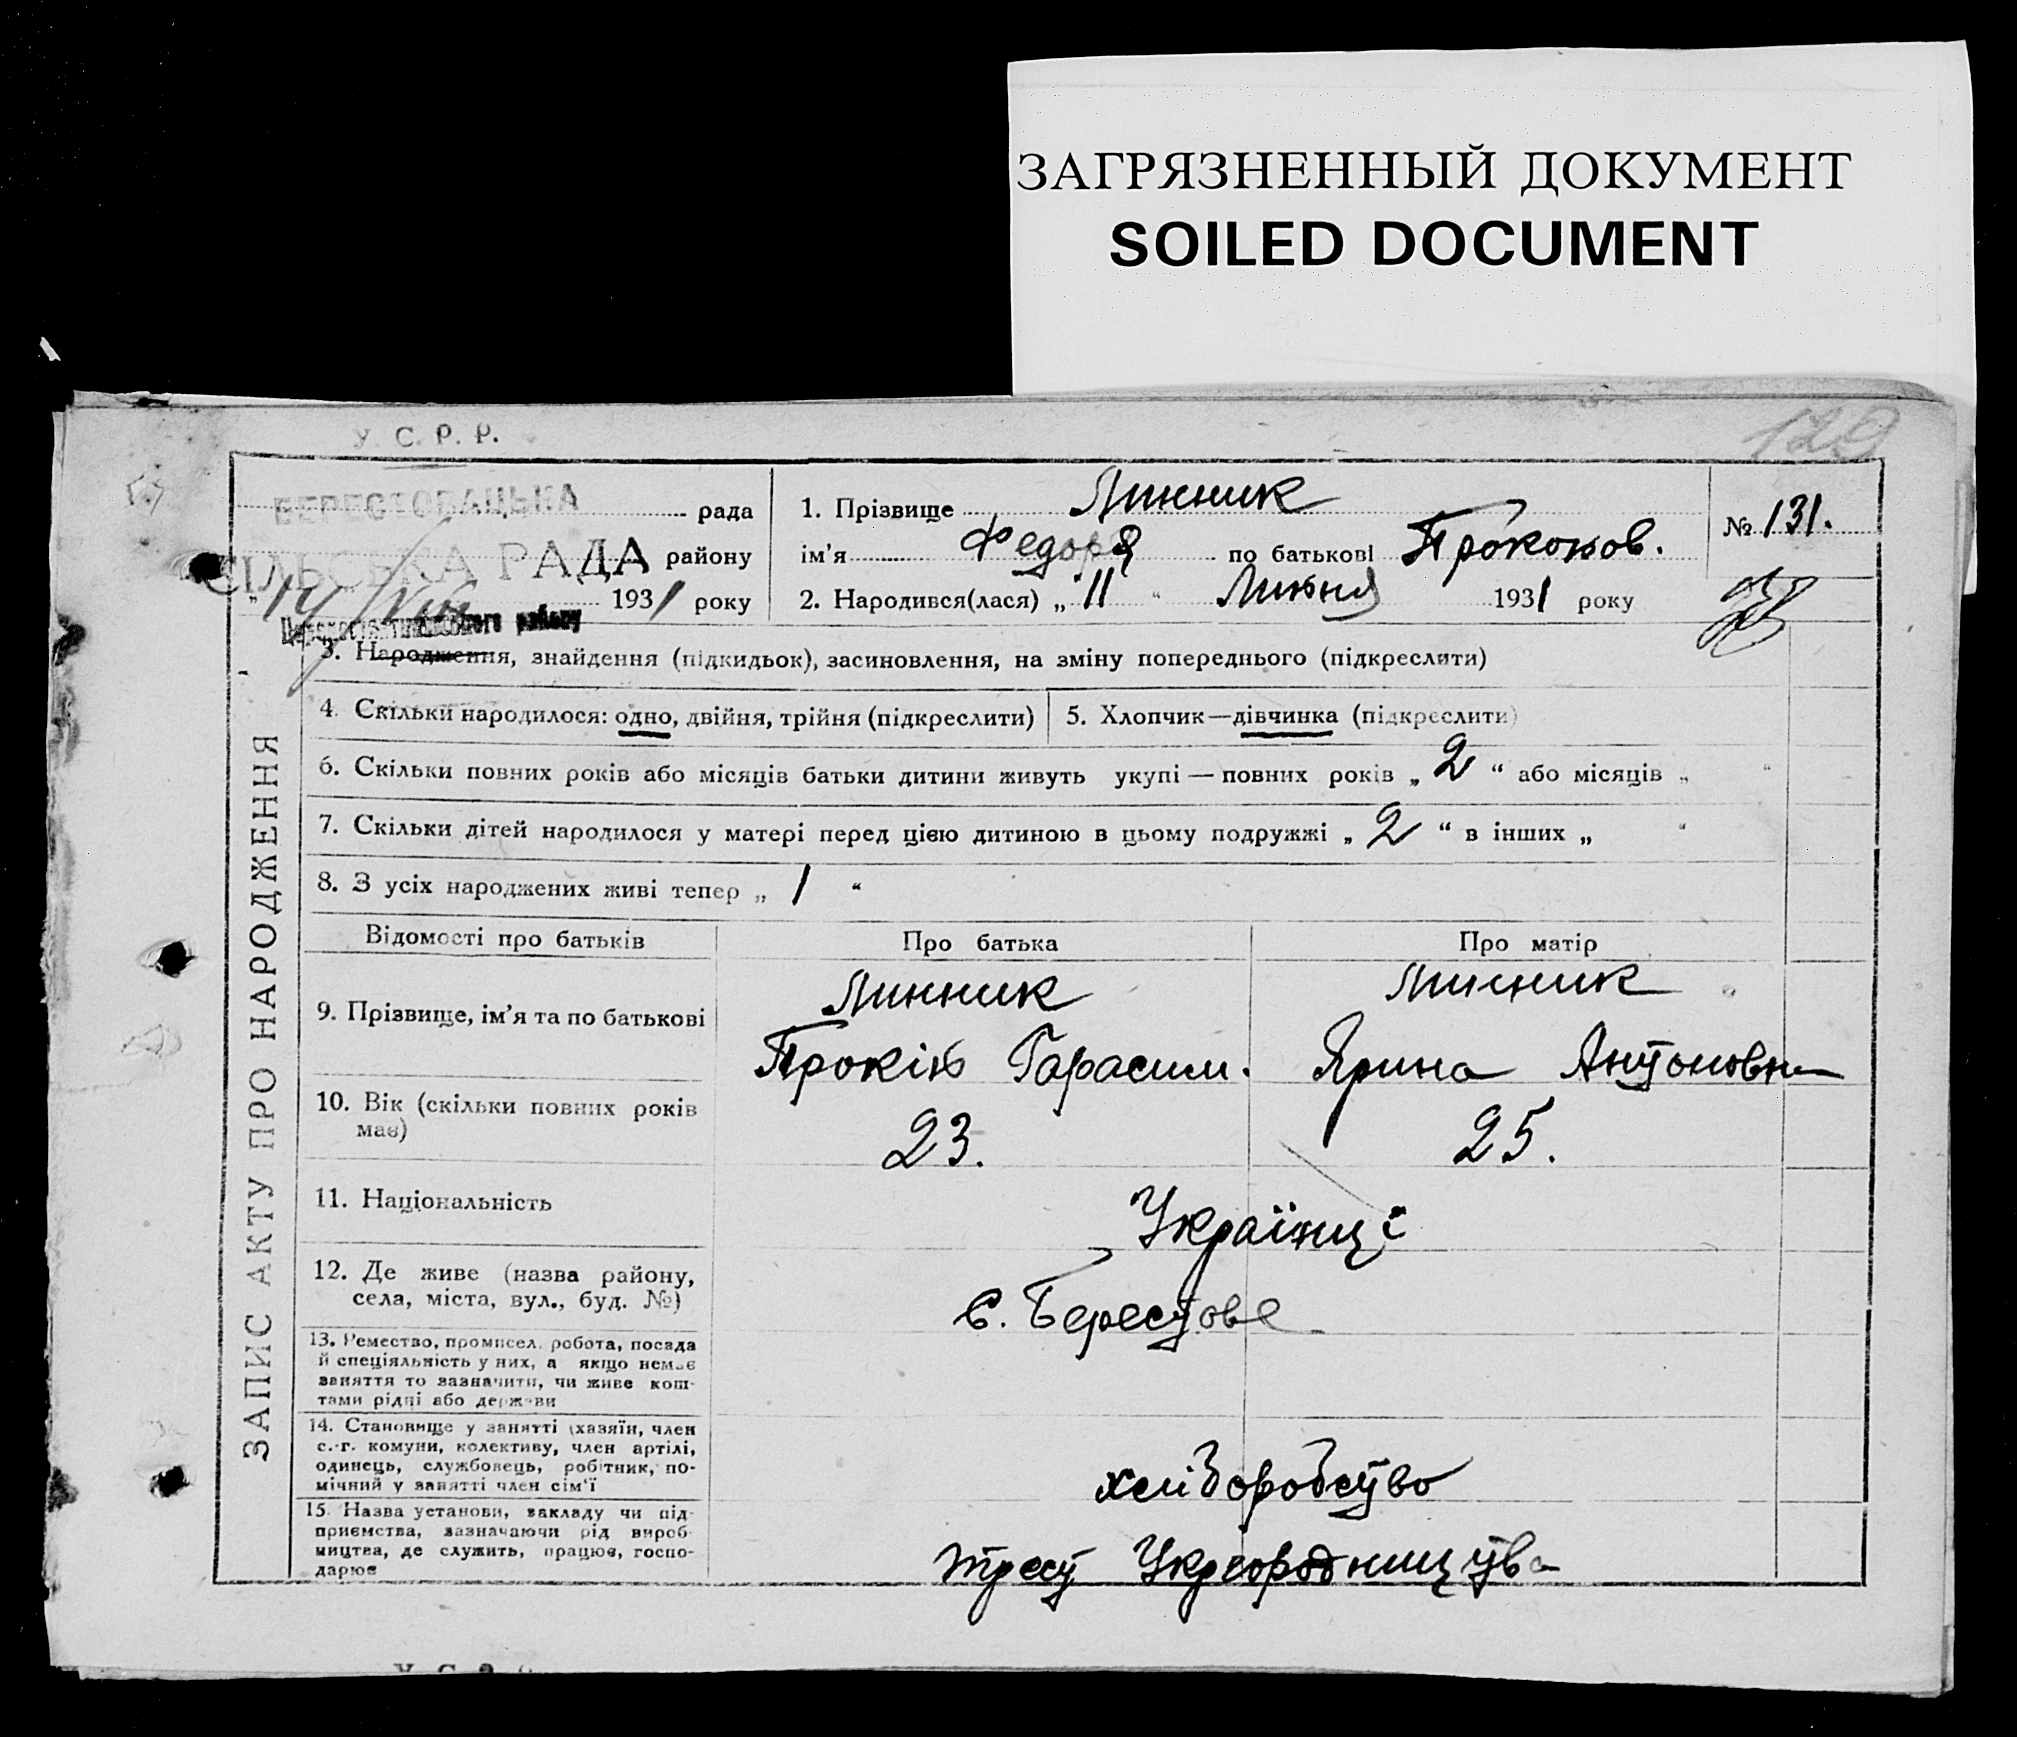 ЗАГРЯЗНЕННЫЙ ДОКУМЕНТ
SOILED DOCUMENT
У. С. Р. Р.
129
БЕРЕСТОВАЦЬКА рада
СІЛЬСЬКА РАДА району
"14/VIII 1931 року
району
1. Прізвище Линник
ім'я Федоря по батькові Прокопов.
№ 131.
2. Народився(лася) „11" Липня 1931 року
3. Народження, знайдення (підкидьок), засиновлення, на зміну попереднього (підкреслити)
4. Скільки народилося: одно, двійня, трійня (підкреслити)
5. Хлопчик—дівчинка (підкреслити)
6. Скільки повних років або місяців батьки дитини живуть укупі — повних років „2" або місяців „ "
7. Скільки дітей народилося у матері перед цією дитиною в цьому подружжі „2" в інших „ "
8. З усіх народжених живі тепер „1"
ЗАПИС АКТУ ПРО НАРОДЖЕННЯ
Відомості про батьків
Про батька
Про матір
9. Прізвище, ім'я та по батькові
Линник
Прокіп Гарасим.
Линник
Ярина Антоновна
10. Вік (скільки повних років
має)
23.
25.
11. Національність
Українці
12. Де живе (назва району,
села, міста, вул., буд. №)
с. Берестове
13. Ремество, промисел, робота, посада
й спеціяльність у них, а якщо немає
заняття то зазначити, чи живе кош-
тами рідні або держави
14. Становище у занятті (хазяїн, член
с.-г. комуни, колективу, член артілі,
одинець, службовець, робітник, по-
мічний у занятті член сім'ї
хліборобство
15. Назва установи, закладу чи під-
приємства, зазначаючи рід вироб-
ництва, де служить, працює, госпо-
дарює
трест